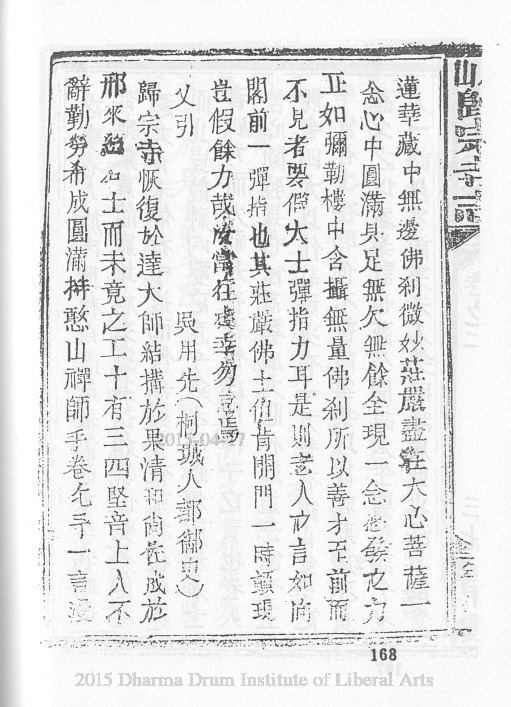 蓮華藏中無邊佛剎微妙莊嚴盡在大心菩薩一
念心中圓滿具足無欠無餘全現一念發之力
正如彌勒樓中含攝無量佛剎所以善才至前而
不見者要假大士彈指力耳是則老人之言如尚
閣前一彈指也其莊嚴佛土但肯開門一時頓現
豈假餘力哉當幸勿焉
又引
吳用先(桐城人都御史)
歸宗寺恢復於達大師結搆於果清和尚在成於
邢來士而未竟之工十有三四堅音上人不
辭勤勞希成圓滿持憨山禪師手卷乞予一言
歸宗寺
168
2015-04-17
2015 Dharma Drum Institute of Liberal Arts